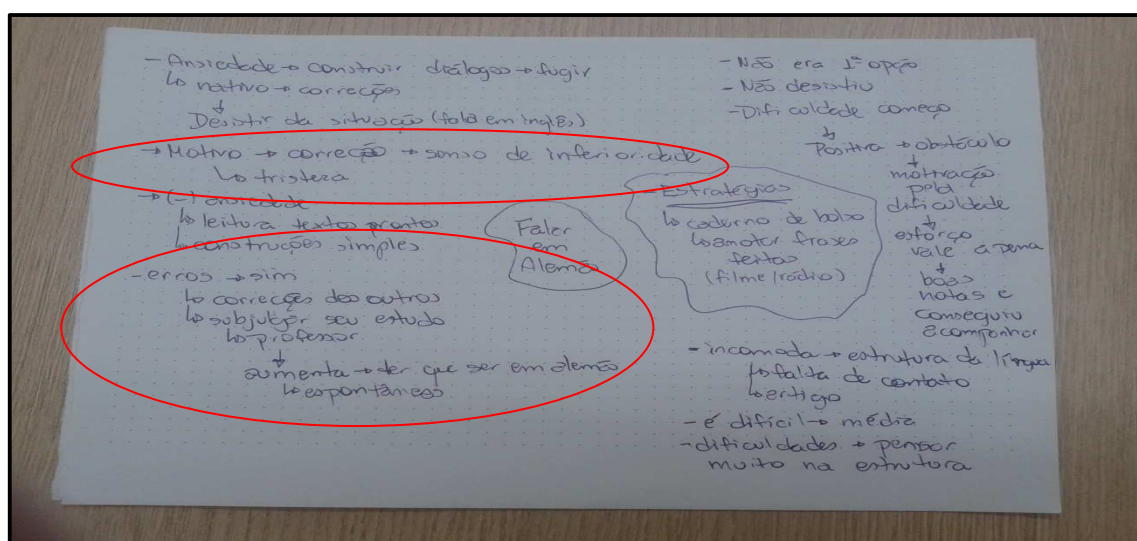 - Ansiedade → construir diálogos → fugir
↳ nativo → correções
↓
Desistir da situação (fala em inglês)
→ Motivo → correção → senso de inferioridade
↳ tristeza
→ (-) ansiedade
↳ leitura textos prontos
↳ construções simples
- erros → sim
↳ correções dos outros
↳ subjulgar seu estudo
↳ professor
↓
aumenta → ter que ser em alemão
↳ espontâneos
Falar
em
Alemão
- Estratégias
↳ caderno de bolso
↳ anotar frases
feitas
(filme/rádio)
- Não era 1ª opção
- Não desistiu
- Dificuldade começo
↓
Positiva → obstáculo
↓
motivação
pela
dificuldade
↓
esforço
vale a pena
↓
boas
notas e
conseguiu
acompanhar
- incomoda → estrutura da língua
↳ falta de contato
↳ artigo
- é difícil → média
- dificuldades → pensar
muito na estrutura